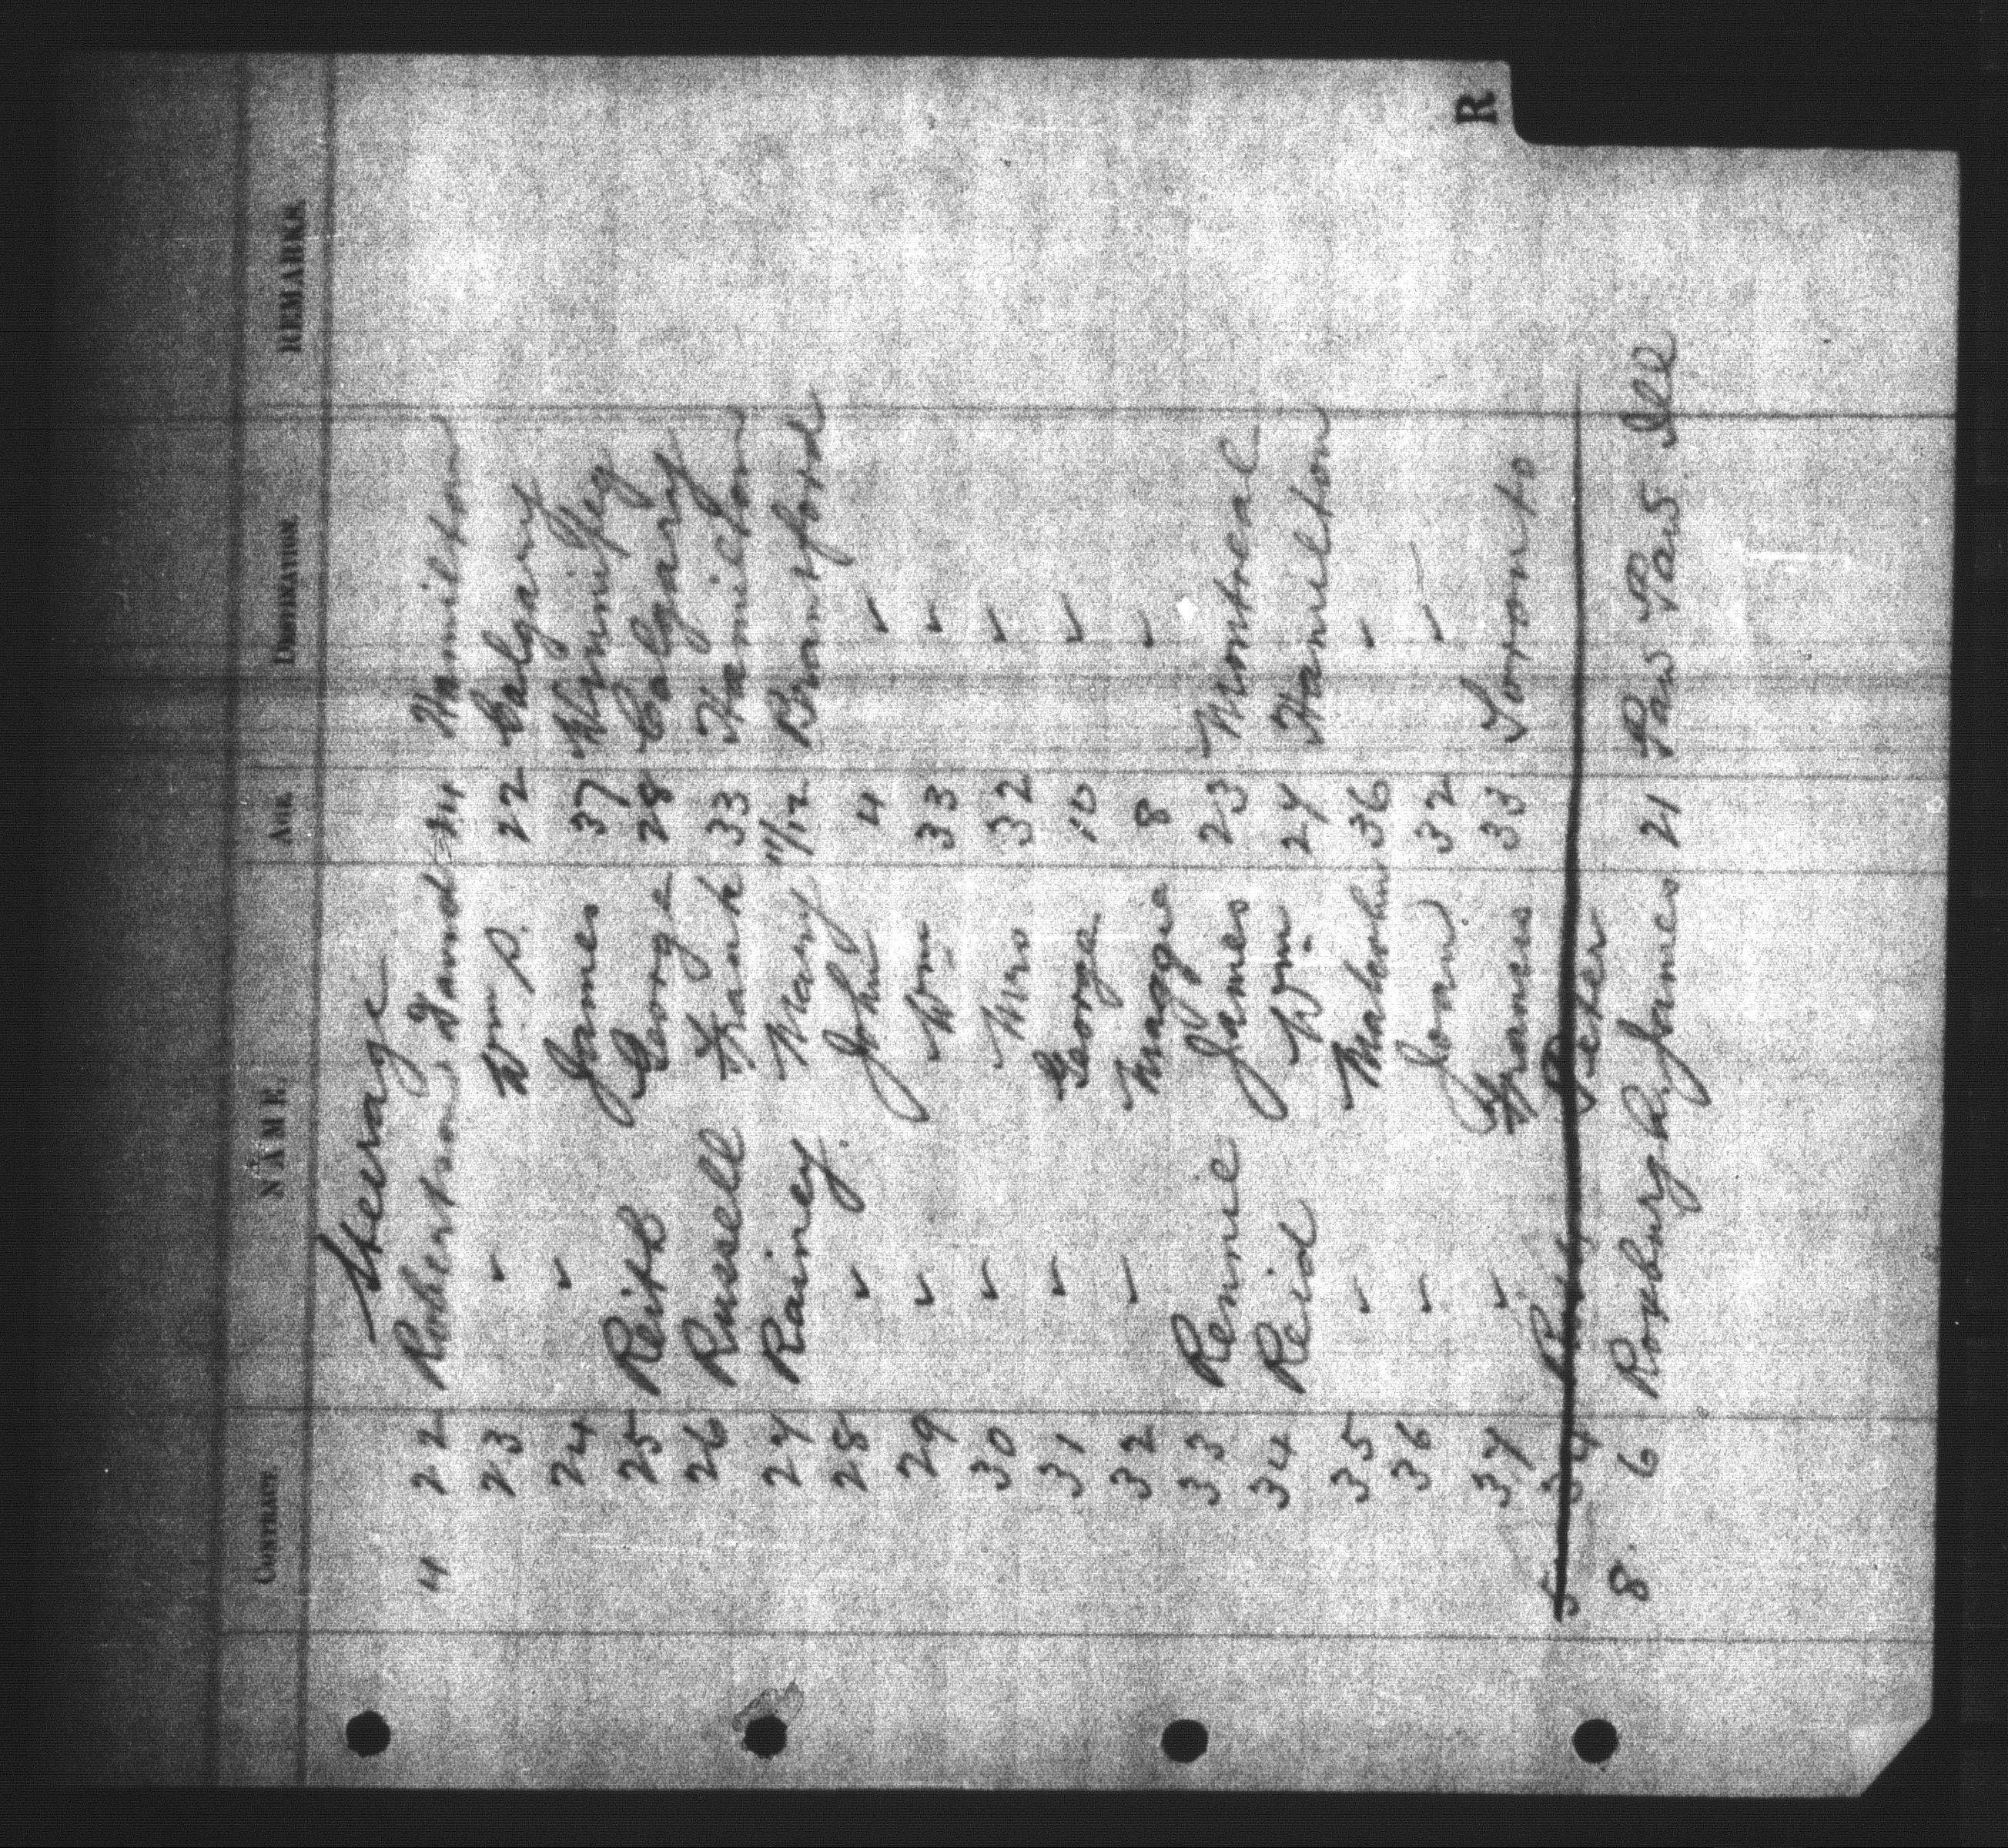 R
CONTRACT. NAME AGE. DESTINATION. REMARKS.
Steerage
4 22 Robertson David Hamilton
23 ✓ Wm P. 22 Calgary
24 ✓ James 37 Winnipeg
25 Reith George 28 Calgary
26 Russell Frank 33 Hamilton
27 Rainey. Mary 11/12 Brantford
28 ✓ John 4 ✓
29 ✓ Wm 33 ✓
30 ✓ Mrs 32 ✓
31 ✓ George 10 ✓
32 ✓ Maggie 8 ✓
33 Rennie James 23 Montreal
34 Reid Wm. 27 Hamilton
35 ✓ 36 ✓
36 ✓ 32 ✓
37 ✓ Francis 33 Toronto
5 34 Peter
8. 6 Roxburgh R. James 21 Paw Paw Ill